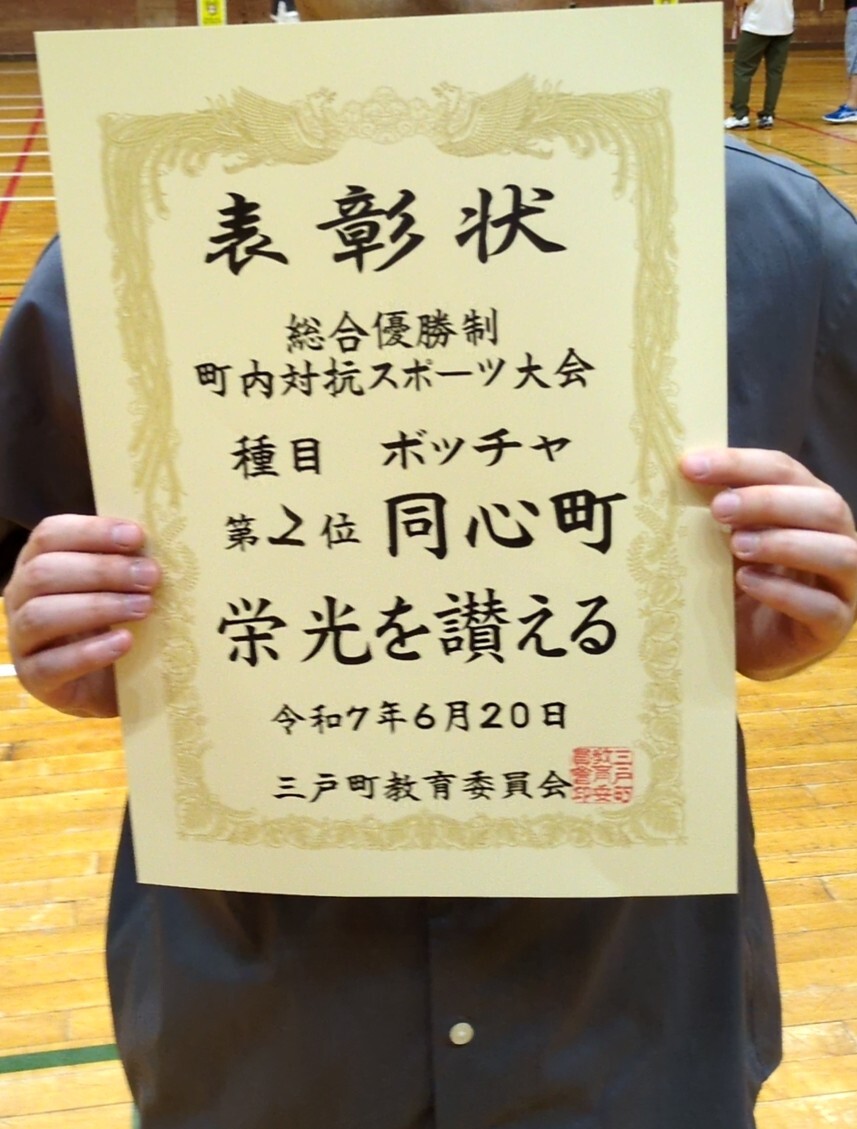 表彰状
総合優勝制
町内対抗スポーツ大会
種目　ボッチャ
第2位 同心町
栄光を讃える
令和7年6月20日
三戸町教育委員会
三戸町
教育委
員會印